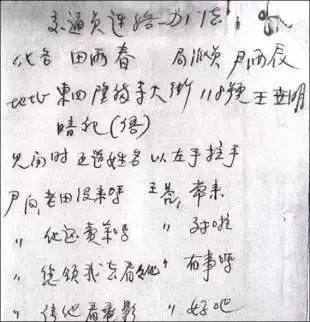 交通员连络方法
化名 田雨春 局派员 尹雨辰
地址 東四隆福寺大街118號王 明
暗记(语)
见面时互道姓名以左手拉手
尹问,老田没来呼 王答,常来
" 他还卖菜呼 " 对啦
" 您领我去看他 " 有事呼
" 请他看电影 " 好吧